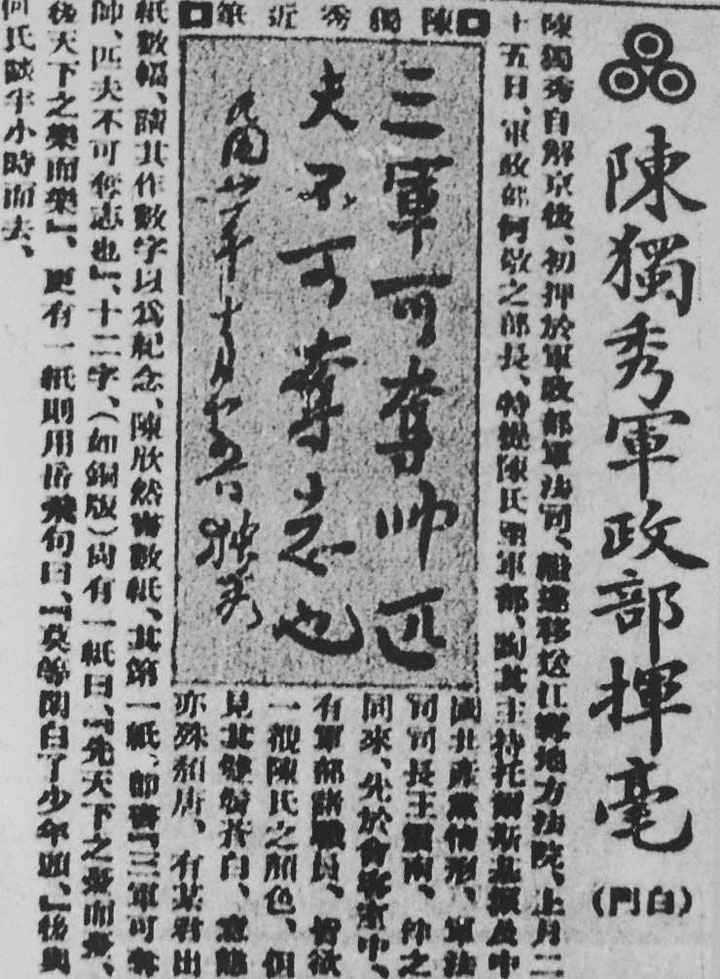 陳獨秀軍政部揮毫
(白門)
陳獨秀自解京後、初押於軍政部軍法司、繼移送江寧地方法院、上月二
十五日、軍政部何敬之部長、特提陳氏至軍部、詢其主持托爾斯基派及中
陳獨秀近筆
三軍可奪帥匹
夫不可奪志也
民國廿一年十月 獨秀
國共產黨情形、軍法
司司長王震南、伴之
同來、先於會客室中、
有軍部諸職員、皆欲
一覩陳氏之顏色、但
見其鬢髮蒼白、意態
亦殊頹唐、有某君出
紙數幅、請其作數字以爲紀念、陳欣然書數紙、其第一紙、卽書『三軍可奪
帥、匹夫不可奪志也』、十二字、(如銅版)尚有一紙曰、『先天下之憂而憂、
後天下之樂而樂』、更有一紙則用岳飛句曰、『莫等閒白了少年頭、』後與
何氏談半小時而去、